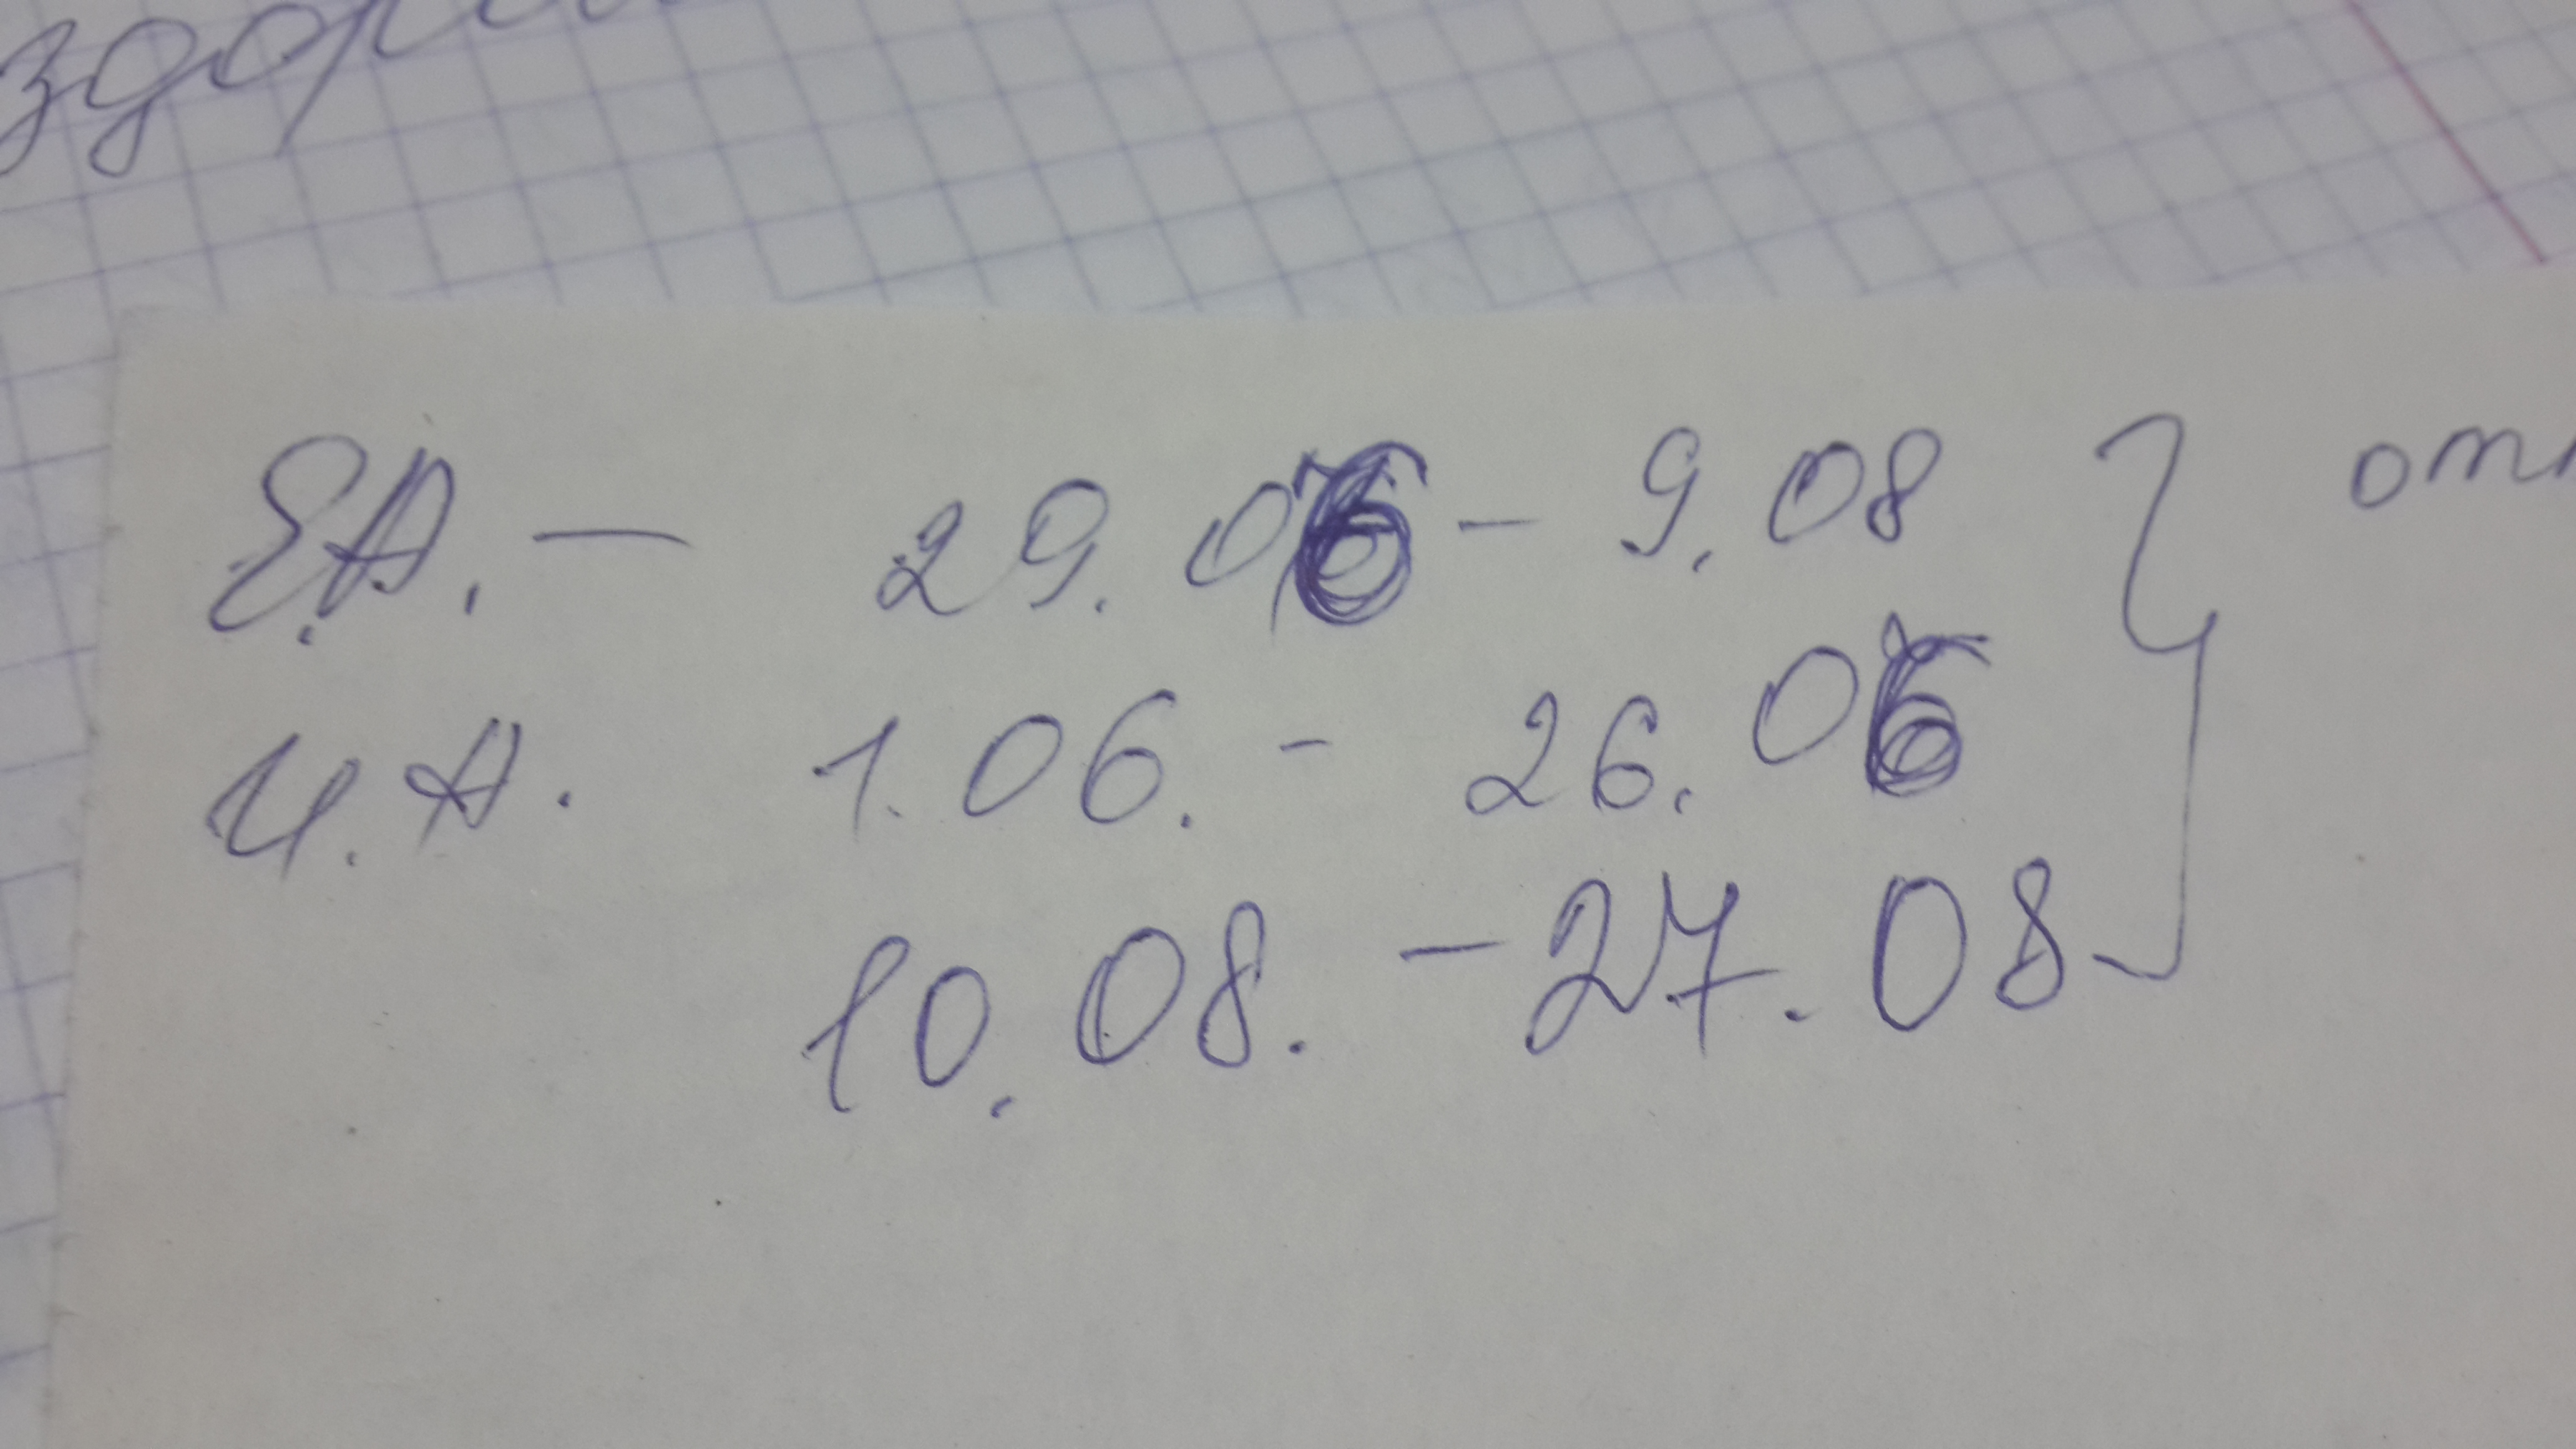 Е.А. — 29.06 – 9.08
И.А. 1.06. - 26.06
10.08. – 27.08